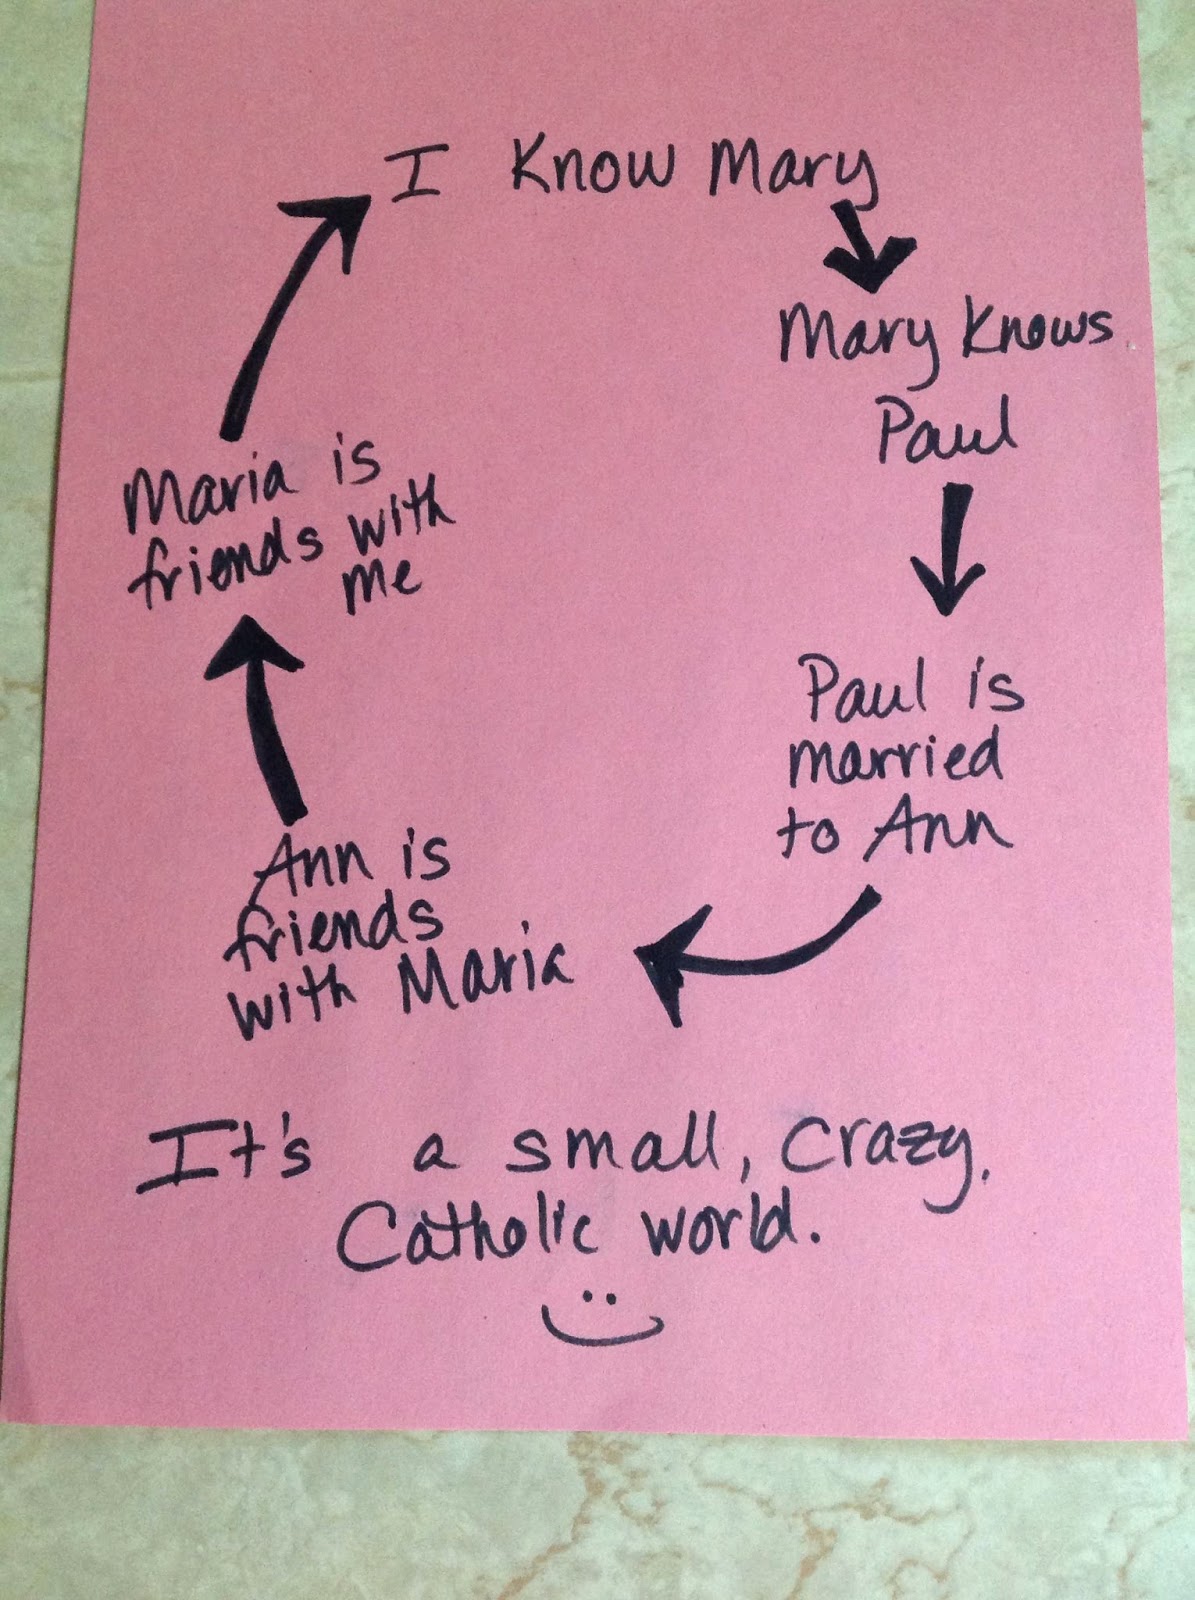 I Know Mary
Mary Knows
Paul
Paul is
married
to Ann
Ann is
friends
with Maria
Maria is
friends with
me
It's a small, crazy,
Catholic world.